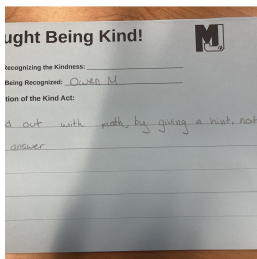 ught Being Kind!
MJ
Recognizing the Kindness:
Being Recognized: Owen M
tion of the Kind Act:
d out with math, by giving a hint, not
answer